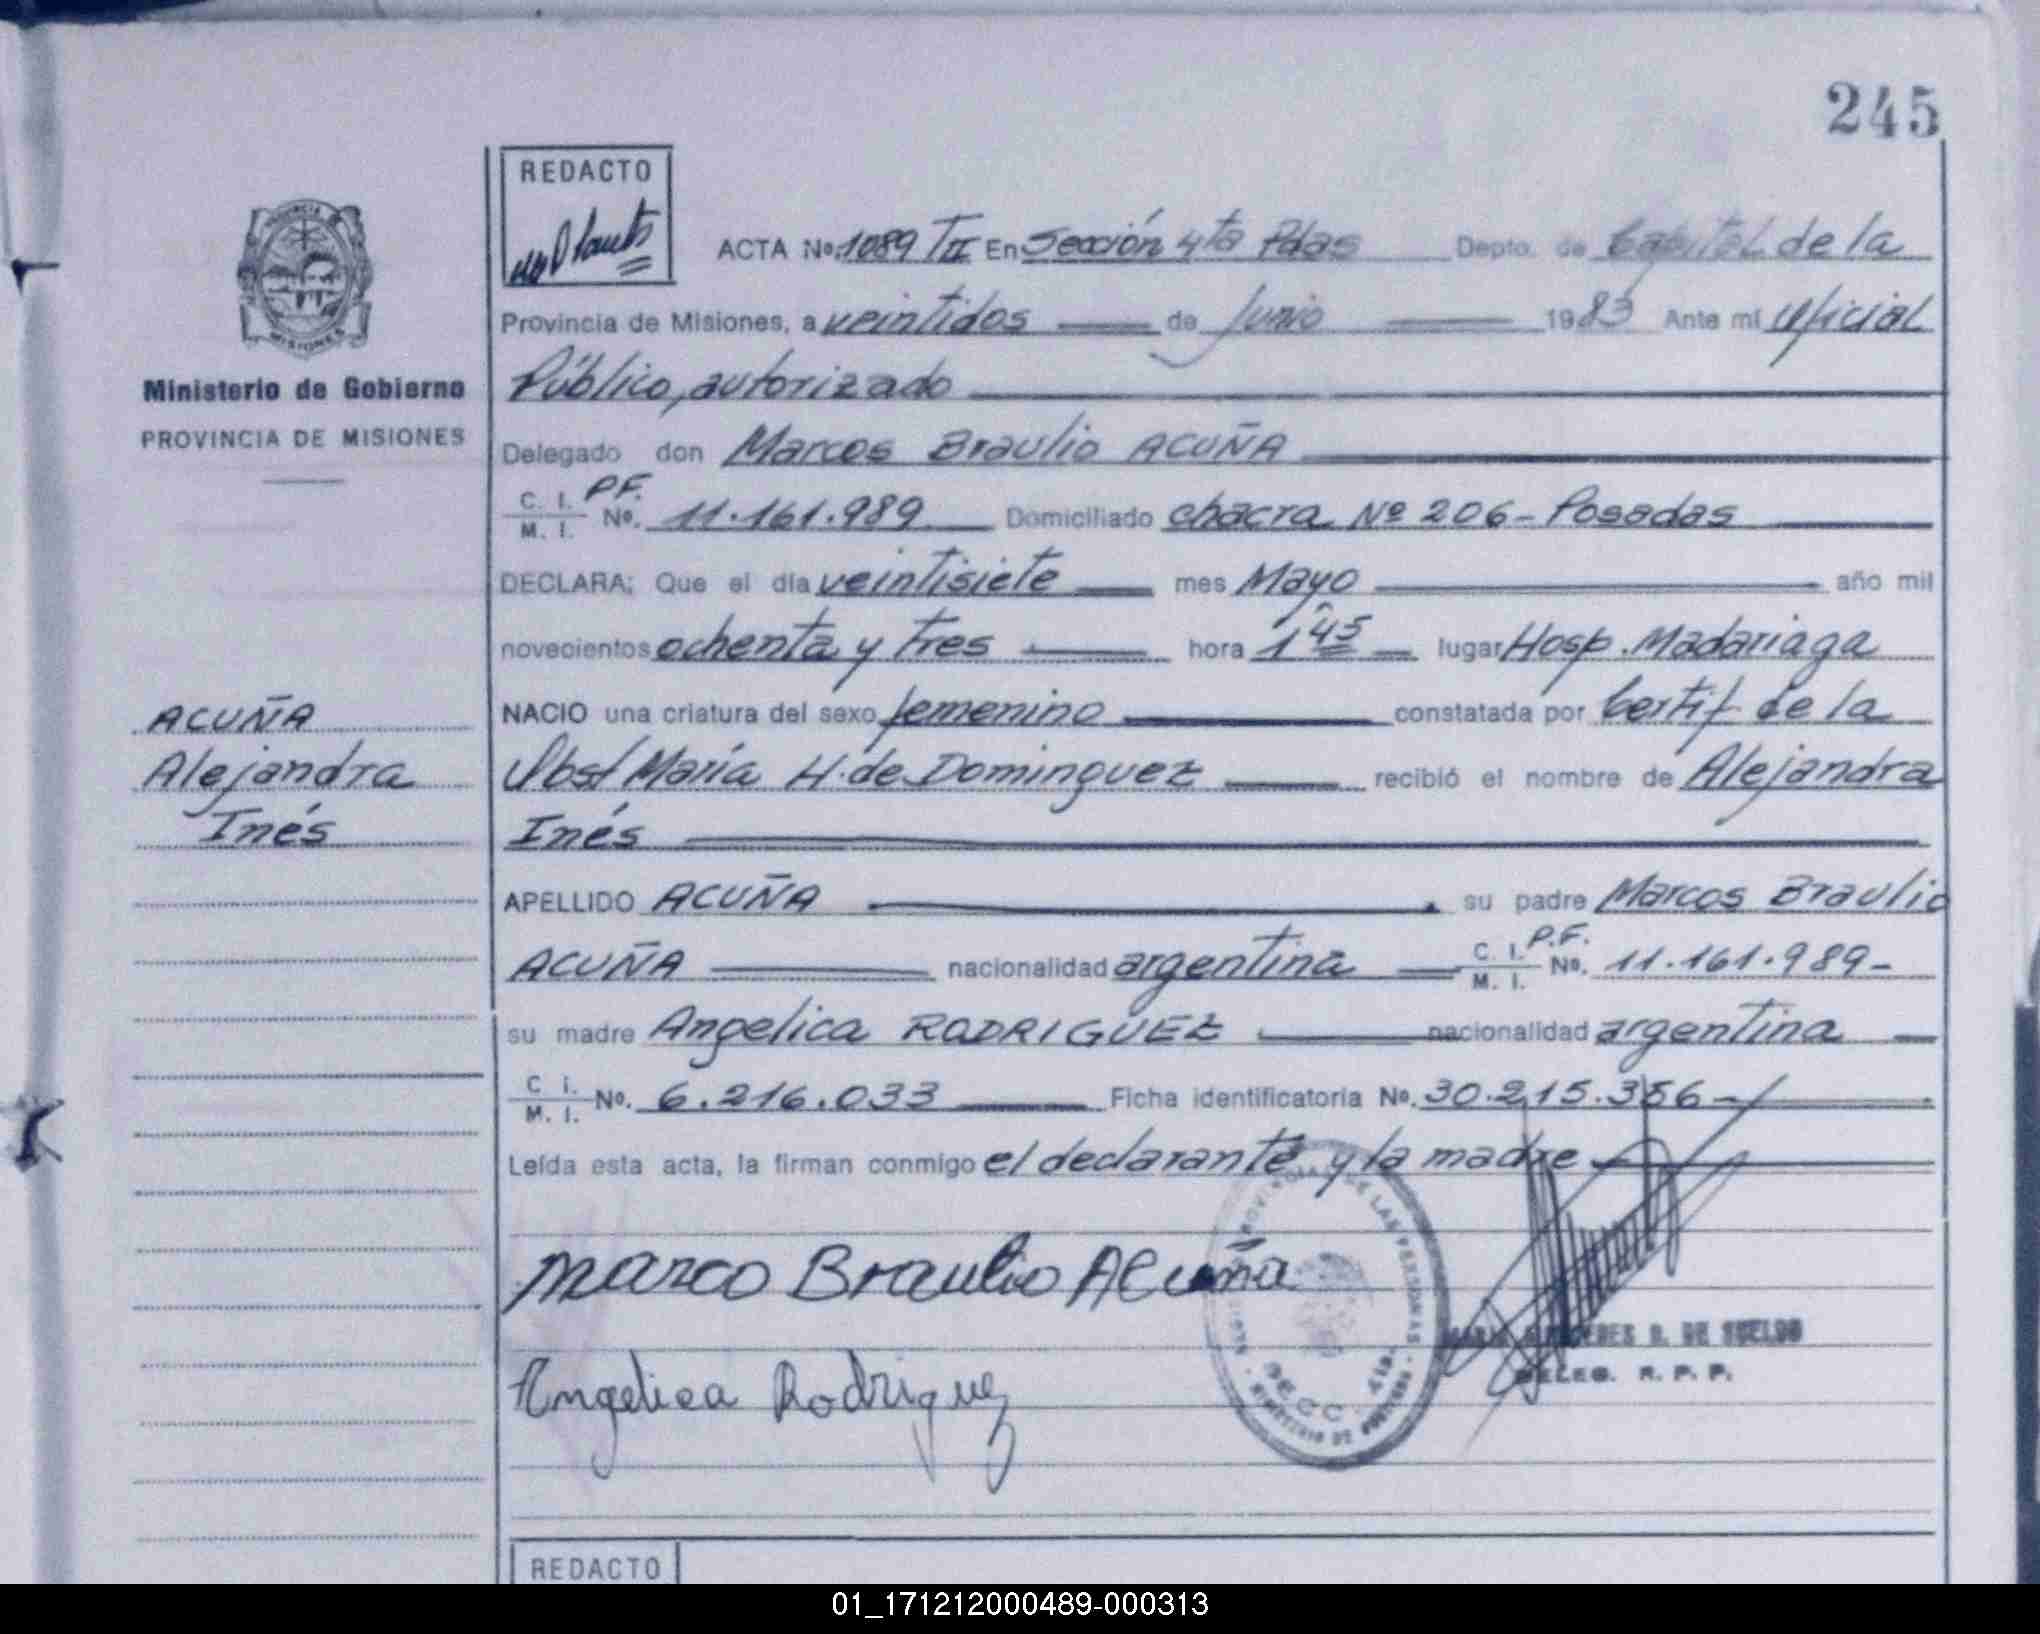 245
REDACTO
ACTA Nº 1089 TII En Sección 4ta Pdas Depto. de Capital de la
Provincia de Misiones, a veintidos de Junio 1983 Ante mi Oficial
Público, autorizado
Ministerio de Gobierno
PROVINCIA DE MISIONES
Delegado don Marcos Braulio ACUÑA
C. I. P.F.
M. I. Nº. 11.161.989 Domiciliado chacra Nº 206 - Posadas
DECLARA; Que el día veintisiete mes Mayo año mil
novecientos ochenta y tres hora 1 45 lugar Hosp. Madariaga
ACUÑA
Alejandra
Inés
NACIO una criatura del sexo femenino constatada por Certif de la
Obst María H. de Dominguez recibió el nombre de Alejandra
Inés
APELLIDO ACUÑA su padre Marcos Braulio
ACUÑA nacionalidad argentina C. I. P.F. M. I. Nº. 11.161.989-
su madre Angelica RODRIGUEZ nacionalidad argentina
C i. M. I. Nº. 6.216.033 Ficha identificatoria Nº. 30.215.356 -
Leída esta acta, la firman conmigo el declarante y la madre
Marco Braulio Acuña
Angelica Rodriguez
DE LAS PERSONAS
DE SUELDO
DELEG. R. P. P.
REDACTO
01_171212000489-000313